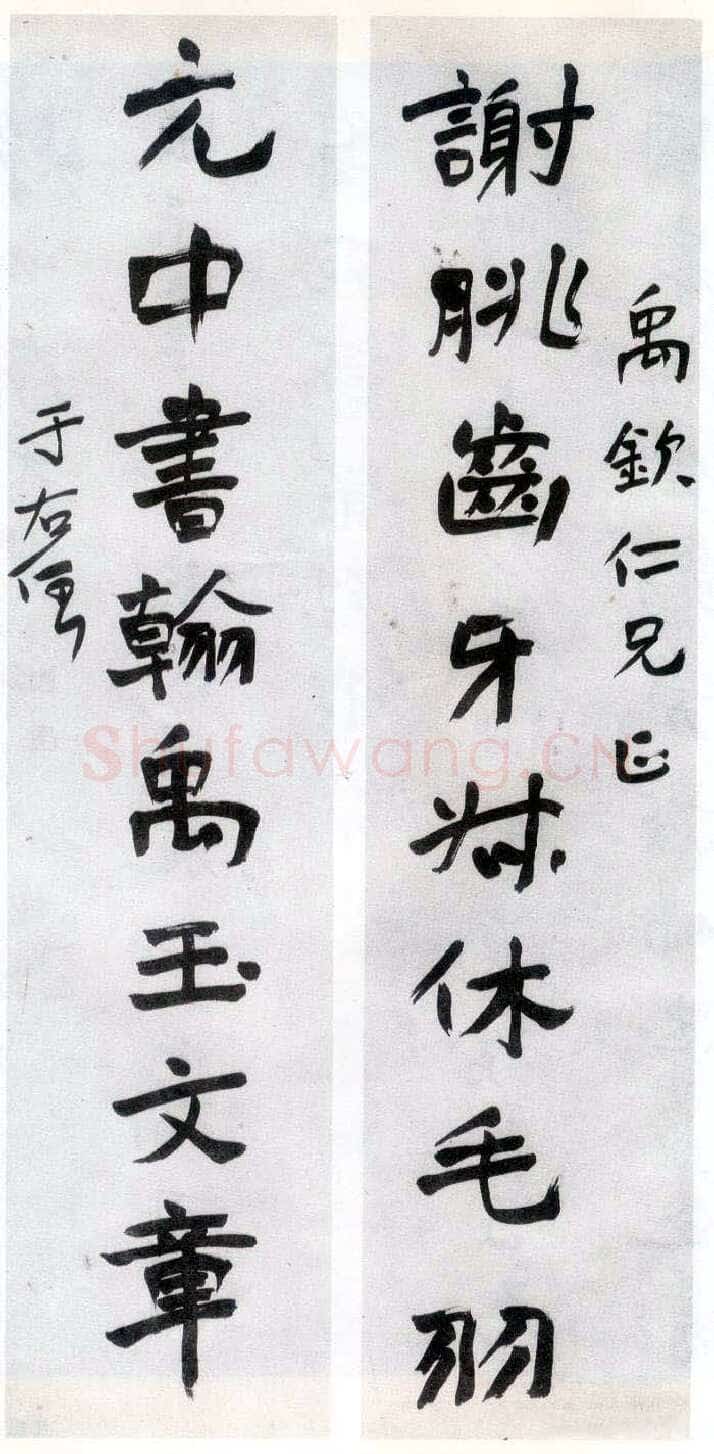 禹欽仁兄正
謝朓齒牙叔休毛羽
元中書翰禹玉文章
于右任
Shufawang.CN